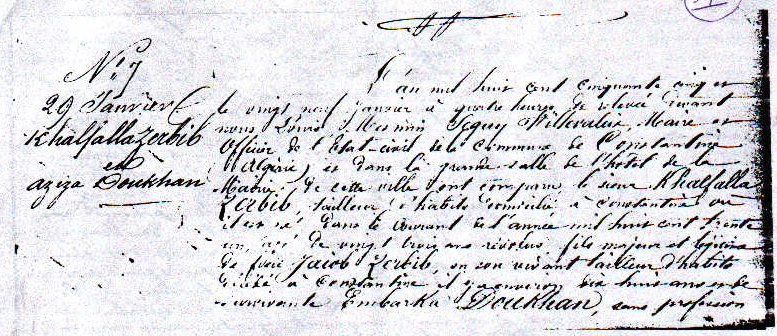 N.° 7
29 Janvier
Khalfalla Zerbib
et
aziza Doukhan
L'an mil huit cent cinquante cinq et
le vingt neuf Janvier à quatre heures de relevée devant
nous Louis Seguy Villevaleix, Maire et
Officier de l'Etat civil de la Commune de Constantine
(Algérie) et dans la grande salle de l'hôtel de la
Mairie de cette ville ont comparu le sieur Khalfalla
Zerbib tailleur d'habits domicilié à Constantine où
il est né dans le courant de l'année mil huit cent trente
un, âgé de vingt trois ans révolus fils majeur et légitime
de feu Jacob Zerbib, en son vivant tailleur d'habits
décédé à Constantine il y a environ dix huit ans et de
survivante Embarka Doukhan, sans profession